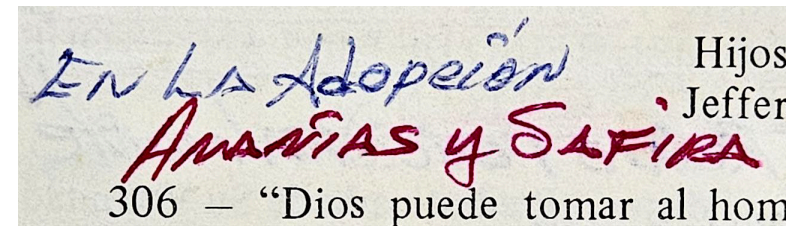 EN LA Adopción Hijos
Jeffer
ANANÍAS y SAFIRA
306 – “Dios puede tomar al hom